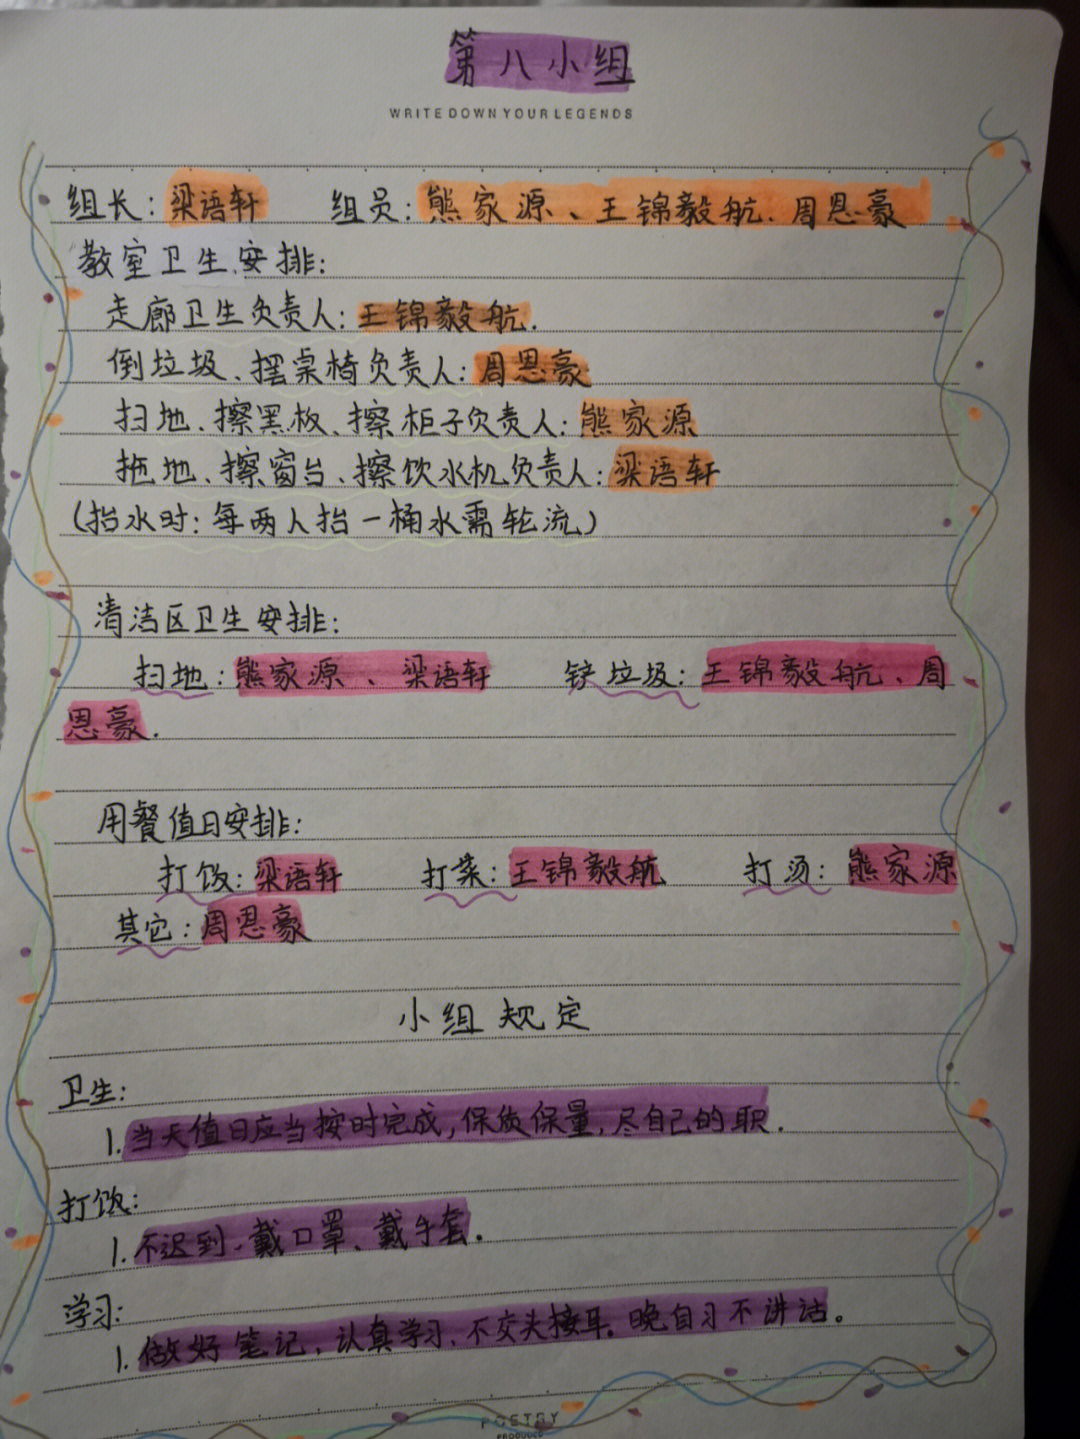 第八小组
WRITE DOWN YOUR LEGENDS
组长：梁语轩 组员：熊家源、王锦毅航、周恩豪
教室卫生安排：
走廊卫生负责人：王锦毅航.
倒垃圾、摆桌椅负责人：周恩豪
扫地、擦黑板、擦柜子负责人：熊家源
拖地、擦窗台、擦饮水机负责人：梁语轩
（抬水时：每两人抬一桶水需轮流）
清洁区卫生安排：
扫地：熊家源、梁语轩 铲垃圾：王锦毅航、周
恩豪.
用餐值日安排：
打饭：梁语轩 打菜：王锦毅航 打汤：熊家源
其它：周恩豪
小组规定
卫生：
1.当天值日应当按时完成，保质保量，尽自己的职.
打饭：
1.不迟到、戴口罩、戴手套.
学习：
1.做好笔记，认真学习、不交头接耳。晚自习不讲话。
POETRY
PRODUCE